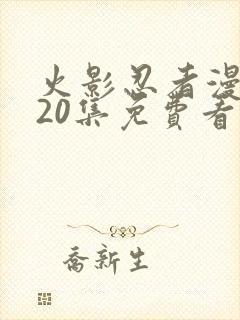 火影忍者漫
20集免費看
喬新生